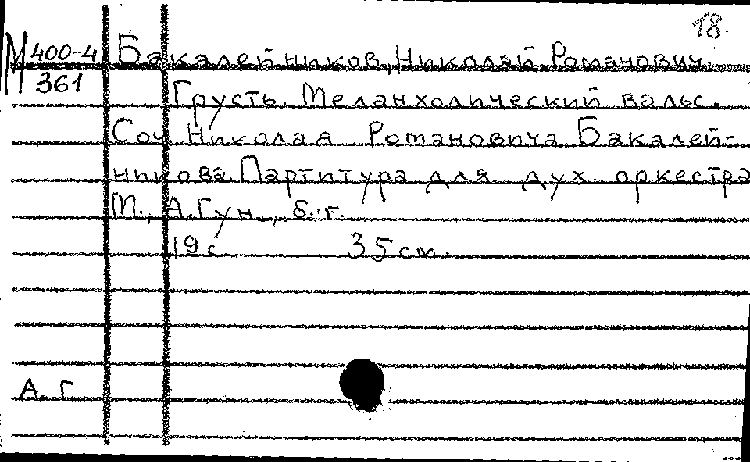 18
М 400-4
361
Бакалейников, Николай Романович
Грусть. Меланхолический вальс.
Соч. Николая Романовича Бакалей-
никова. Партитура для дух оркестра
М., А. Гун., б. г.
19 с 35 см.
А. Г